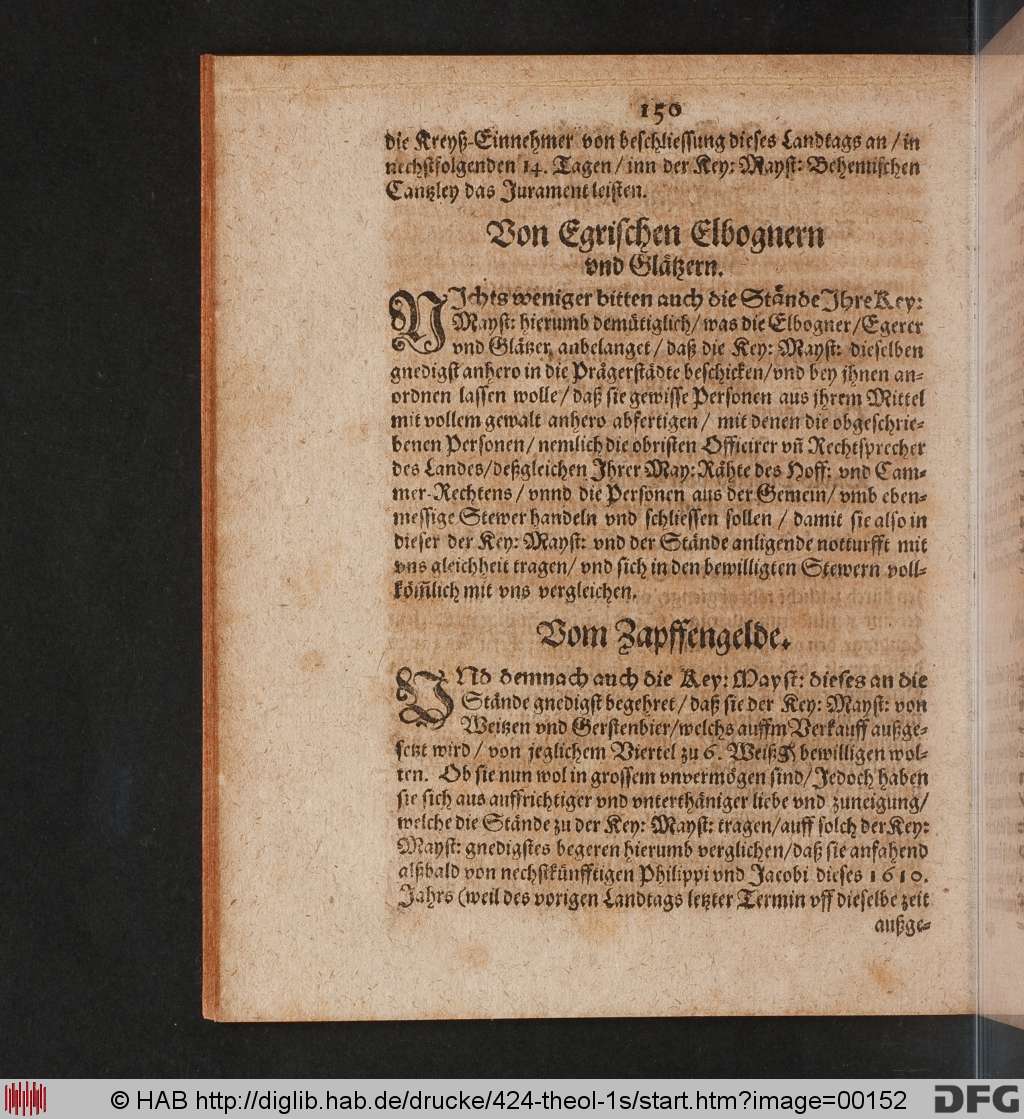 150
die Kreyß-Einnehmer von beschliessung dieses Landtags an / in
nechstfolgenden 14. Tagen / inn der Key: Mayst: Behemischen
Cantzley das Jurament leisten.
Von Egrischen Elbognern
vnd Glätzern.
NIchts weniger bitten auch die Stände Ihre Key:
Mayst: hierumb demütiglich / was die Elbogner / Egerer
vnd Glätzer anbelanget / daß die Key: Mayst: dieselben
gnedigst anhero in die Prägerstädte beschicken / vnd bey jhnen an-
ordnen lassen wolle / daß sie gewisse Personen aus jhrem Mittel
mit vollem gewalt anhero abfertigen / mit denen die obgeschrie-
benen Personen / nemlich die obristen Officirer vñ Rechtsprecher
des Landes / deßgleichen Ihrer May: Rähte des Hoff: vnd Cam-
mer-Rechtens / vnnd die Personen aus der Gemein / vmb eben-
messige Stewer handeln vnd schliessen sollen / damit sie also in
dieser der Key: Mayst: vnd der Stände anligende notturfft mit
vns gleichheit tragen / vnd sich in den bewilligten Stewern voll-
köm̃lich mit vns vergleichen.
Vom Zapffengelde.
VNd demnach auch die Key: Mayst: dieses an die
Stände gnedigst begehret / daß sie der Key: Mayst: von
Weitzen vnd Gerstenbier / welchs auffm Verkauff außge-
setzt wird / von jeglichem Viertel zu 6. Weiß bewilligen wol-
ten. Ob sie nun wol in grossem vnvermögen sind / Jedoch haben
sie sich aus auffrichtiger vnd vnterthäniger liebe vnd zuneigung /
welche die Stände zu der Key: Mayst: tragen / auff solch der Key:
Mayst: gnedigstes begeren hierumb verglichen / daß sie anfahend
alßbald von nechstkünfftigen Philippi vnd Jacobi dieses 1610.
Jahrs (weil des vorigen Landtags letzter Termin vff dieselbe zeit
außge-
© HAB http://diglib.hab.de/drucke/424-theol-1s/start.htm?image=00152
DFG